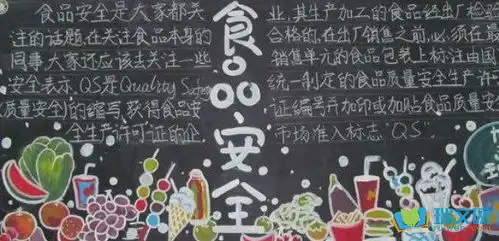 食品安全
食品安全是大家都关
注的话题,在关注食品本身的
同事,大家还应该去关注一些
安全表示,QS是Quality Safety
(质量安全)的缩写,获得食品安
全生产许可证的企
业,其生产加工的食品经出厂检验
合格的,在出厂销售之前,必须在最
销售单元的食品包装上标注由国
统一制定的食品质量安全生产许
证编号并加印或加贴食品质量安
市场准入标志"QS"
瑞文网